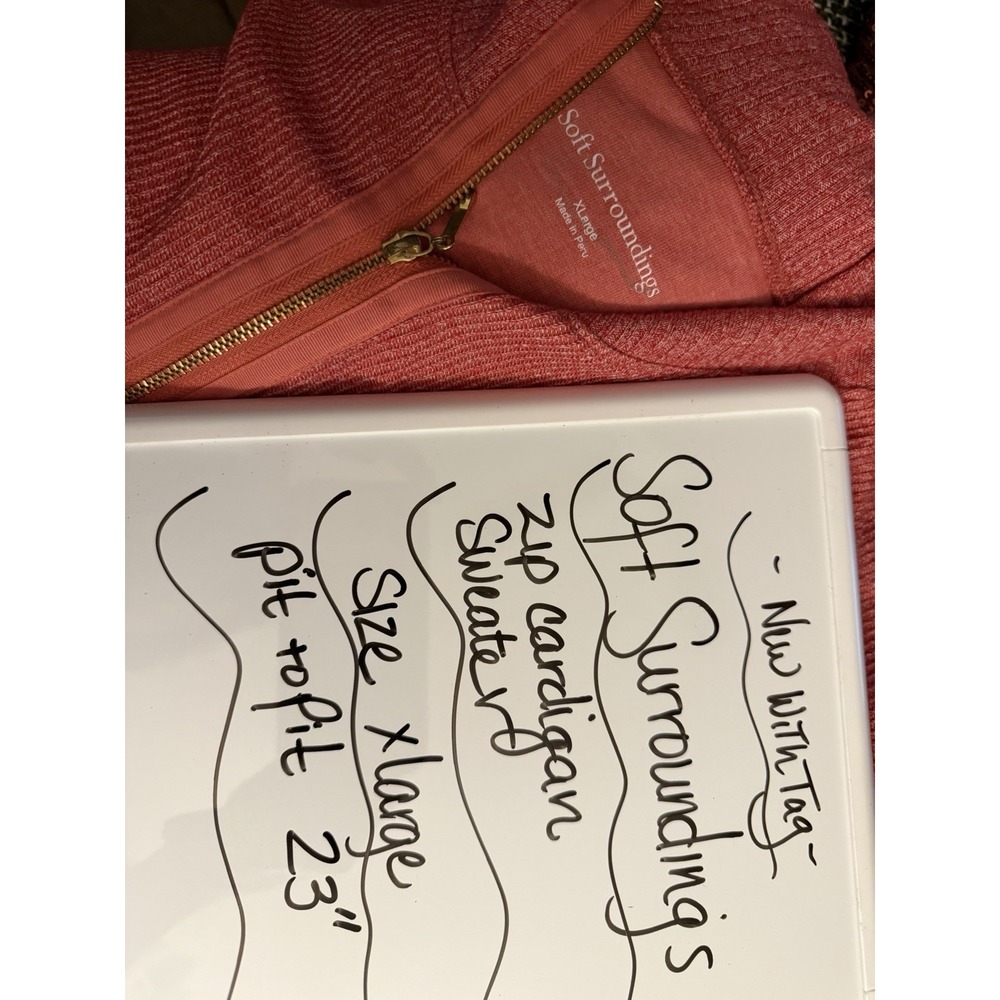 Soft Surroundings
XLarge
Made in Peru
- New With Tag -
Soft Surroundings
zip cardigan
sweater
Size xlarge
pit to pit 23"